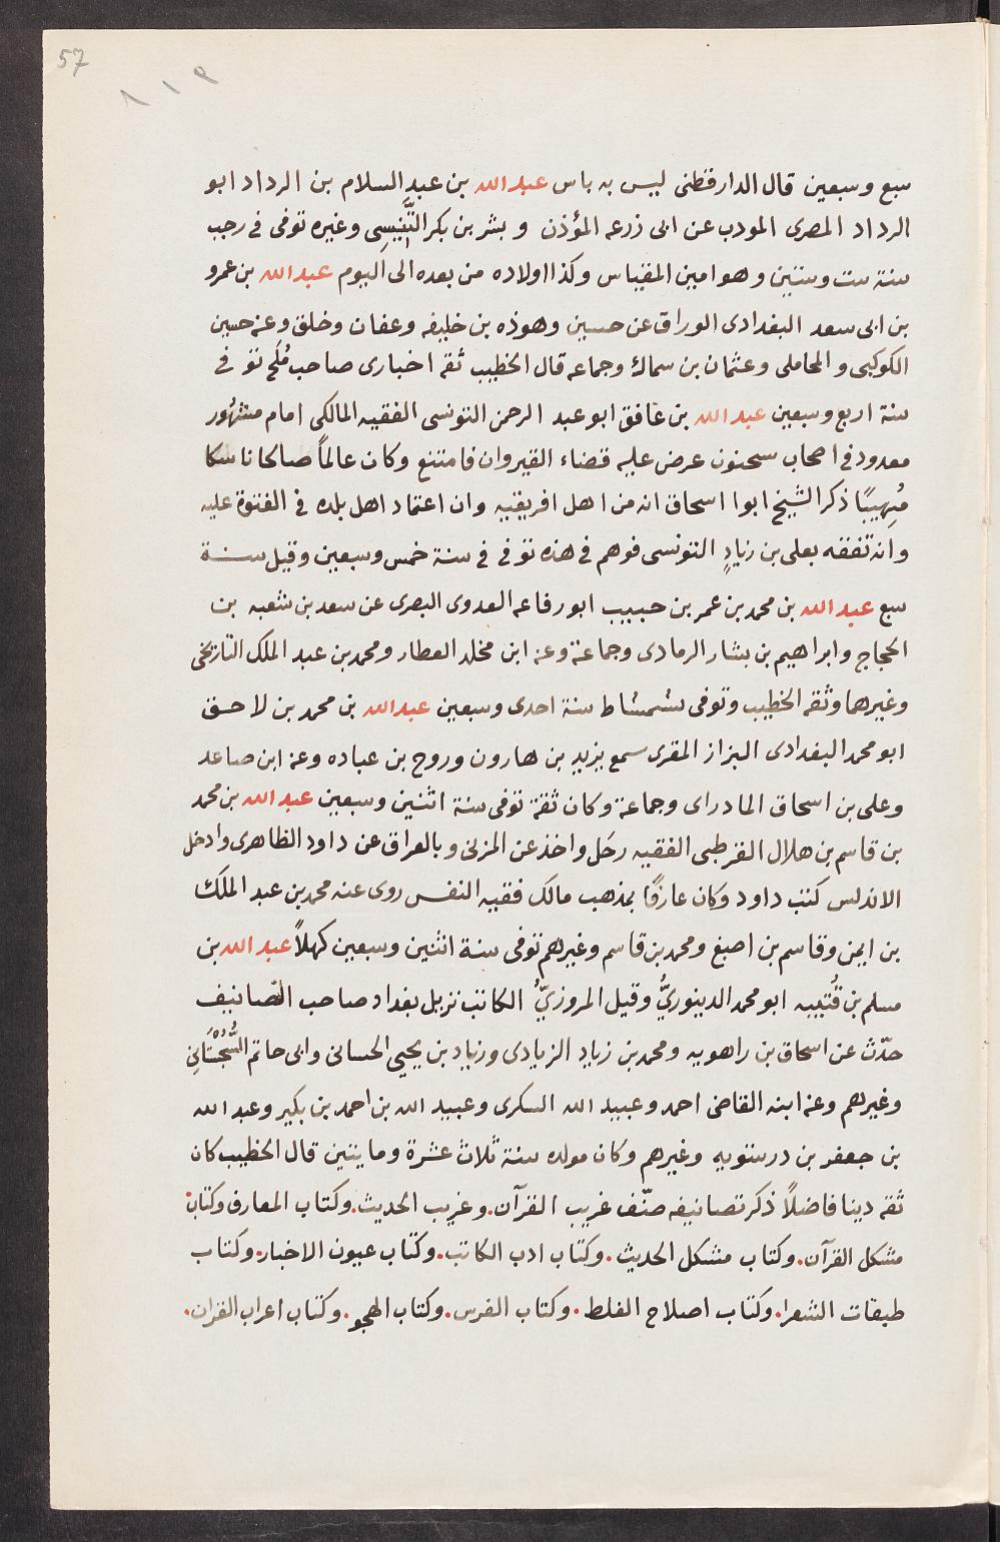 57
٨١٩
سبع وسبعين قال الدارقطنى ليس به باس عبد الله بن عبد السلام بن الرداد ابو
الرداد المصرى المودب عن ابى زرعه المؤذن و بشر بن بكر التِّنِّيسِى وغيره توفى فى رجب
سنة ست وستين وهو امين المقياس وكذا اولاده من بعده الى اليوم عبد الله بن عمرو
بن ابى سعد البغدادى الوراق عن حسين وهوذه بن خليفه وعفان وخلق وعنه حسين
الكوكبى و المحاملى وعثمان بن سماك وجماعه قال الخطيب ثقه اخبارى صاحب مُلَح توفى
سنة اربع وسبعين عبد الله بن غافق ابو عبد الرحمن التونسى الفقيه المالكى امام مشهور
معدود فى اصحاب سحنون عرض عليه قضاء القيروان فامتنع وكان عالماً صالحا ناسكا
مُهيبًا ذكر الشيخ ابوا اسحاق انه من اهل افريقيه وان اعتماد اهل بلده فى الفتوة عليه
وانه تفقه بعلى بن زيادٍ التونسى فوهم فى هذه توفى فى سنة خمس وسبعين وقيل سنة
سبع عبد الله بن محمد بن عمر بن حبيب ابو رفاعه العدوى البصرى عن سعد بن شعبه بن
الحجاج وابراهيم بن بشار الرمادى وجماعة وعنه ابن مخلد العطار ومحمد بن عبد الملك التاريخى
وغيرهما وثقه الخطيب وتوفى بشمشاط سنة احدى وسبعين عبد الله بن محمد بن لاحق
ابو محمد البغدادى البزاز المقرى سمع يزيد بن هارون وروح بن عباده وعنه ابن صاعد
وعلى بن اسحاق المادراى وجماعة وكان ثقة توفى سنة اثنين وسبعين عبد الله بن محمد
بن قاسم بن هلال القرطبى الفقيه رحَل واخذ عن المزنى وبالعراق عن داود الظاهرى وادخل
الاندلس كتب داود وكان عارفًا بمذهب مالك فقيه النفس روى عنه محمد بن عبد الملك
بن ايمن وقاسم بن اصبغ ومحمد بن قاسم وغيرهم توفى سنة اثنين وسبعين كهلاً عبد الله بن
مسلم بن قُتَيبه ابو محمد الدينوريُّ وقيل المروزيُّ الكاتب نزيل بغداد صاحب التصانيف
حدّث عن اسحاق بن راهويه ومحمد بن زياد الزيادى وزياد بن يحيى الحسانى وابى حاتم السُّجُسْتَانِى
وغيرهم وعنه ابنه القاضى احمد وعبيد الله السكرى وعبيد الله بن احمد بن بكير وعبد الله
بن جعفر بن درستويه وغيرهم وكان مولده سنة ثلاث عشرة ومايتين قال الخطيب كان
ثقه دينا فاضلاً ذكر تصانيفه صنّف غريب القرآن. وغريب الحديث. وكتاب المعارف وكتاب.
مشكل القرآن. وكتاب مشكل الحديث. وكتاب ادب الكاتب. وكتاب عيون الاخبار. وكتاب
طبقات الشعرا. وكتاب اصلاح الغلط. وكتاب الفرس. وكتاب الهجو. وكتاب اعراب القران.